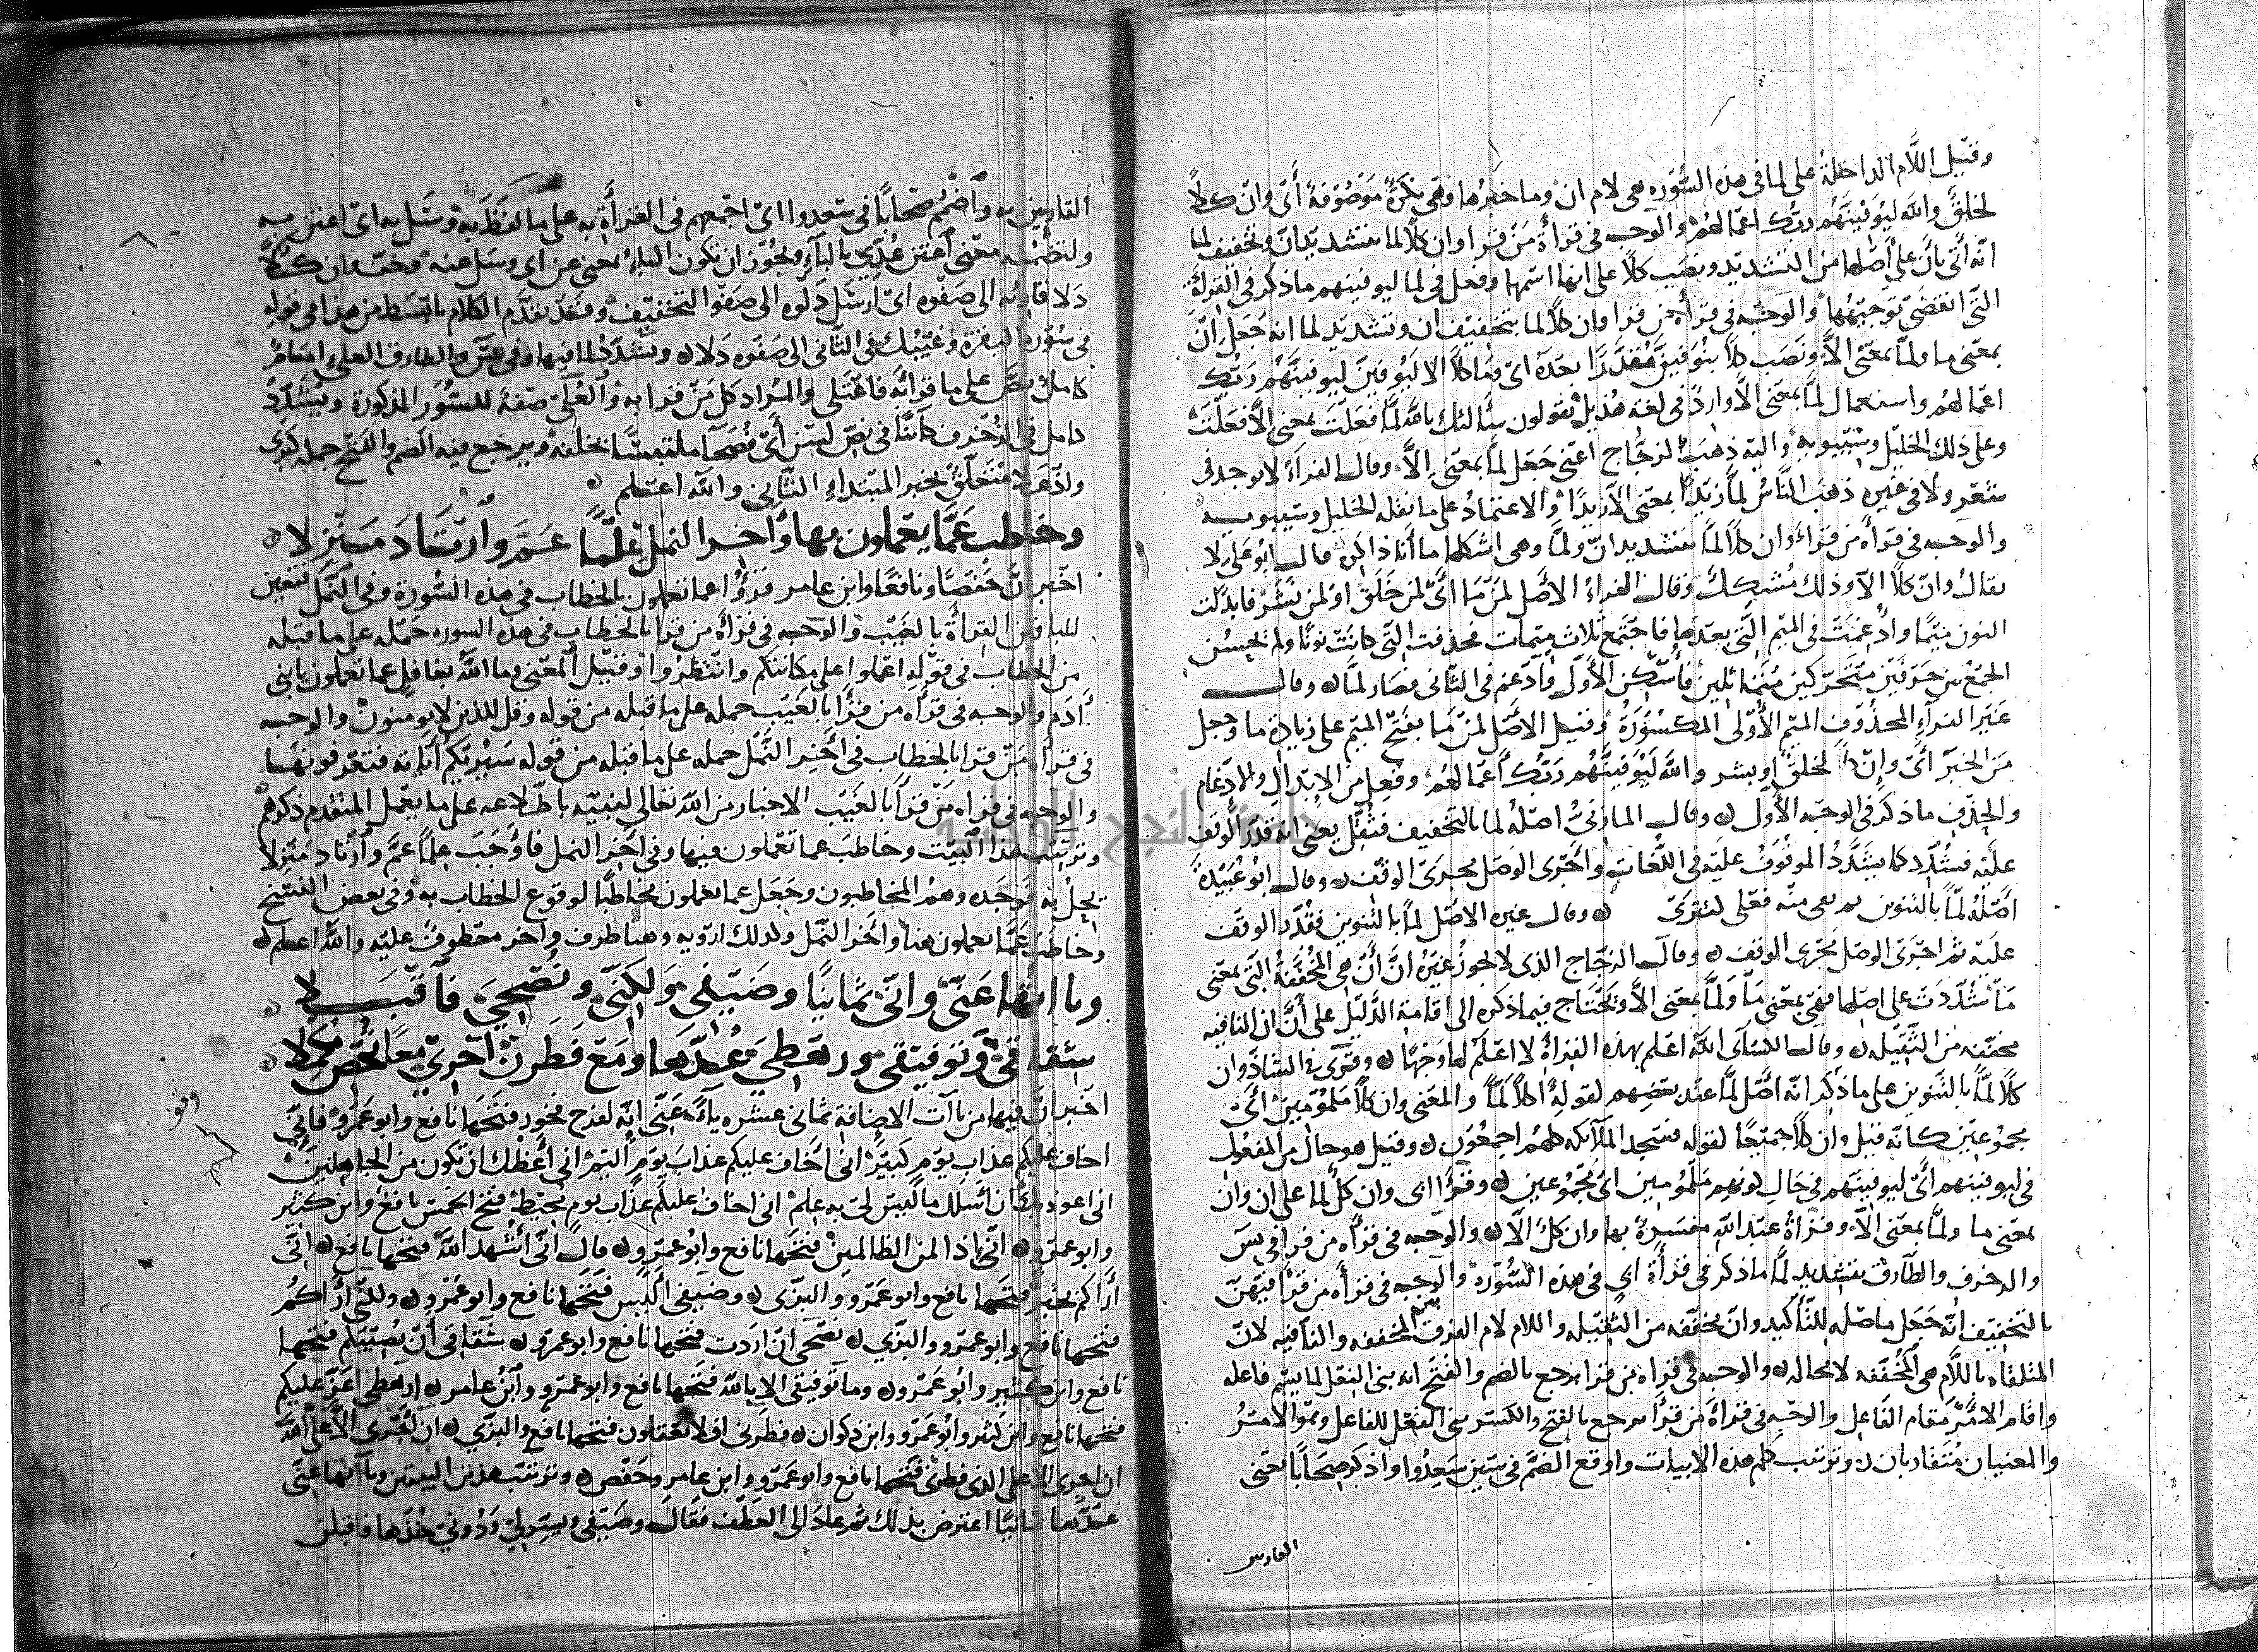 وقيل اللام الداخلة على لما في هذه السورة هي لام ان وما خبرها وهي نكرة موصوفة أي وان كلا
لخلق والله ليوفينهم ربك اعمالهم والوجه في قرأة من قرا وان كلا لما بتشديد ان وتخفيف لما
انه أتى بان على اصلها من التشديد ونصب كلا على انها اسمها وفعل في لما ليوفينهم ما ذكر في القرأة
التي انقضى توجيهها والوجه في قرأة من قرا وان كلا لما بتخفيف ان وتشديد لما انه جعل ان
بمعنى ما ولما بمعنى الا ونصب كلا بيوفين مقدرا بعده اي وما كلا الا ليوفين ليوفينهم ربك
اعمالهم واستعمال لما بمعنى الا وارد في لغة هذيل تقولون سألتك بالله لما فعلت بمعنى الا فعلت
وعلى ذلك الخليل وسيبويه واليه ذهب الزجاج اعني جعل لما بمعنى الا وقال الفراء لا يوجد في
شعر ولا في غيره ذهب الناس لما زيدا بمعنى الا زيدا والاعتماد على ما نقله الخليل وسيبويه
والوجه في قرأة من قراء وان كلا لما بتشديد ان ولما وهي اشكلها ما أنا ذاكره قال ابو علي لا
يقال وان كلا الا وذلك مشكل وقال الفراء الاصل لمن ما اي لمن خلق او لمن بشر فابدلت
النون ميما وادغمت في الميم التي بعدها فاجتمع ثلاث ميمات فحذفت التي كانت نونا ولم يحسن
الجمع بين حرفين متحركين متماثلين فأسكن الأول وادغم في الثاني فصار لما وقال
غير الفرآء المحذوف الميم الأولى المكسورة وقيل الاصل لمن ما بفتح الميم على زيادة ما وجعل
من الخبر أي وان كلا لخلق او بشر والله ليوفينهم ربك اعمالهم وفعل من الابدال والادغام
والحذف ما ذكر في الوجه الأول وقال المازني اصله لما بالتخفيف فثقل يعني انه قدر الوقف
عليه فشدد كما يشدد الموقوف عليه في اللغات واجرى الوصل مجرى الوقف وقال ابو عبيدة
اصله لما بالتنوين ثم بني منه فعلى لتترى وقال غيره الاصل لما بالتنوين فقدر الوقف
عليه ثم اجرى الوصل مجرى الوقف وقال الزجاج الذي لا يجوز غيره ان أن هي المخففة التي بمعنى
ما شددت على اصلها فهي بمعنى ما ولما بمعنى الا ويحتاج فيما ذكره الى اقامة الدليل على أن ان النافيه
مخففه من الثقيله وقال الكسائى الله اعلم بهذه القرأة لا اعلم لها وجها وقرى في الشاذ وان
كلا لما بالتنوين على ما ذكر انه اصل لما عند بعضهم لقوله اكلا لما والمعنى وان كلا ملمومين أي
مجموعين كانه قيل وان كلا جميعا لقوله فسجد الملآئكه كلهم اجمعون وقيل هو حال من المفعول
في ليوفينهم أي ليوفينهم في حال كونهم ملمومين اي مجموعين وقرأ ابي وان كل لما على ان وان
بمعنى ما ولما بمعنى الا وقرأة عبد الله مفسرة بها وان كل الا والوجه في قرأة من قرا في يس
والزخرف والطارق بتشديد لما ما ذكر في قرأة ابي في هذه السورة والوجه في قرأة من قرأ فيهن
بالتخفيف انه جعل ما صلة للتأكيد وان مخففه من الثقيله واللام لام الفرق بين المخففه والنافيه لان
المتلقاه باللام هي المخففه لا محاله والوجه في قرأه من قرا يرجع بالضم والفتح انه بنى الفعل لما لم يسم فاعله
واقام الامر مقام الفاعل والوجه في قرأة من قرأ يرجع بالفتح والكسر بنى الفعل للفاعل وهو الامر
والمعنيان متقاربان وترتيب كلم هذه الابيات واوقع الضم في سين سعدوا واذكر صحابا بمعنى
القارس
القارسين به واضمم صحابا في سعدوا اي اجمعهم في القرأة به على ما لفظ به وسل به اي اعتن به
ولتضمنه معنى اعتن عدي بالبآء ويجوز ان تكون الباء بمعنى عن اي وسل عنه وخف وان كلا
دلا فائه الى صفوه اي ارسل دلوه الى صفو التخفيف وقد تقدم الكلام بابسط من هذا في قوله
في سورة البقرة وغيبك في الثاني الى صفوه دلا وتشدد لما فيها وفي يس والطارق العلي امام
كامل نص على ما قرأته فاعتلى والمراد كل من قرا به والعلى صفة للسور المذكورة ويشدد
كامل في الزخرف كائنا في نص لسن أي فصحآ ملتبسا بخلفه ويرجع فيه الضم والفتح جملة كبرى
واذ علا متعلق بخبر المبتداء الثاني والله اعلم
وخاطب عما يعملون بها وآخر النمل علما عم وارتاد منزلا
اخبر ان حفصا ونافعا وابن عامر قرؤا عما تعملون بالخطاب في هذه السورة وفي النمل فتعين
للباقين القرأة بالغيب والوجه في قرأة من قرا بالخطاب في هذه السوره حمله على ما قبله
من الخطاب في قوله اعملوا على مكانتكم وانتظروا وقيل المعنى وما الله بغافل عما تعملون يا بني
آدم والوجه في قرأه من قرأ بالغيب حمله على ما قبله من قوله وقل للذين لا يومنون والوجه
في قرأة من قرا بالخطاب في آخر النمل حمله على ما قبله من قوله سيريكم آياته فتعرفونها
والوجه في قراه من قرأ بالغيب الاخبار من الله تعالى لنبيه باطلاعه على ما يعمل المتقدم ذكرهم
وترتيب هذا البيت وخاطب عما تعملون فيها وفي آخر النمل فاوجب علما عم وارتاد منزلا
يحل به فوجده وهم المخاطبون وجعل عما يعملون مخاطبا لوقوع الخطاب به وفي بعض النسخ
وخاطب عما يعملون هنا وآخر النمل ولذلك ارويه وهنا ظرف وآخر معطوف عليه والله اعلم
ويا آتها عني واني ثمانيا وضيفي ولكني ونصحي فاقبلا
شقاقي وتوفيقي ورهطي عدها ومع فطرن اجري معا تحص مكملا
اخبر ان فيها من ياآت الاضافة ثماني عشره يآء عني انه لفرح فخور فتحها نافع وابو عمرو فاني
اخاف عليكم عذاب يوم كبير اني اخاف عليكم عذاب يوم اليم اني أعظك ان تكون من الجاهلين
اني اعوذ بك ان اسلك ما ليس لي به علم اني اخاف عليكم عذاب يوم محيط فتح الخمس نافع وابن كثير
وابو عمرو اني اذا لمن الظالمين فتحها نافع وابو عمرو قال اني أشهد الله فتحها نافع اني
أراكم بخير فتحها نافع وابو عمرو والبزى وضيفي أليس فتحها نافع وابو عمرو ولكني أراكم
فتحها نافع وابو عمرو والبزي نصحي ان اردت فتحها نافع وابو عمرو شقاقي أن يصيبكم فتحها
نافع وابن كثير وابو عمرو وما توفيقي الا بالله فتحها نافع وابو عمرو وابن عامر ارهطي اعز عليكم
فتحها نافع وابن كثير وابو عمرو وابن ذكوان فطرني افلا تعقلون فتحها نافع والبزي ان اجرى الا على الله
ان اجرى الا على الذي فطرني فتحها نافع وابو عمرو وابن عامر وحفص وترتيب هذين البيتين ويا آتها عني
عدها ثمانيا اعترض بذلك ثم عاد الى العطف فقال وضيفي